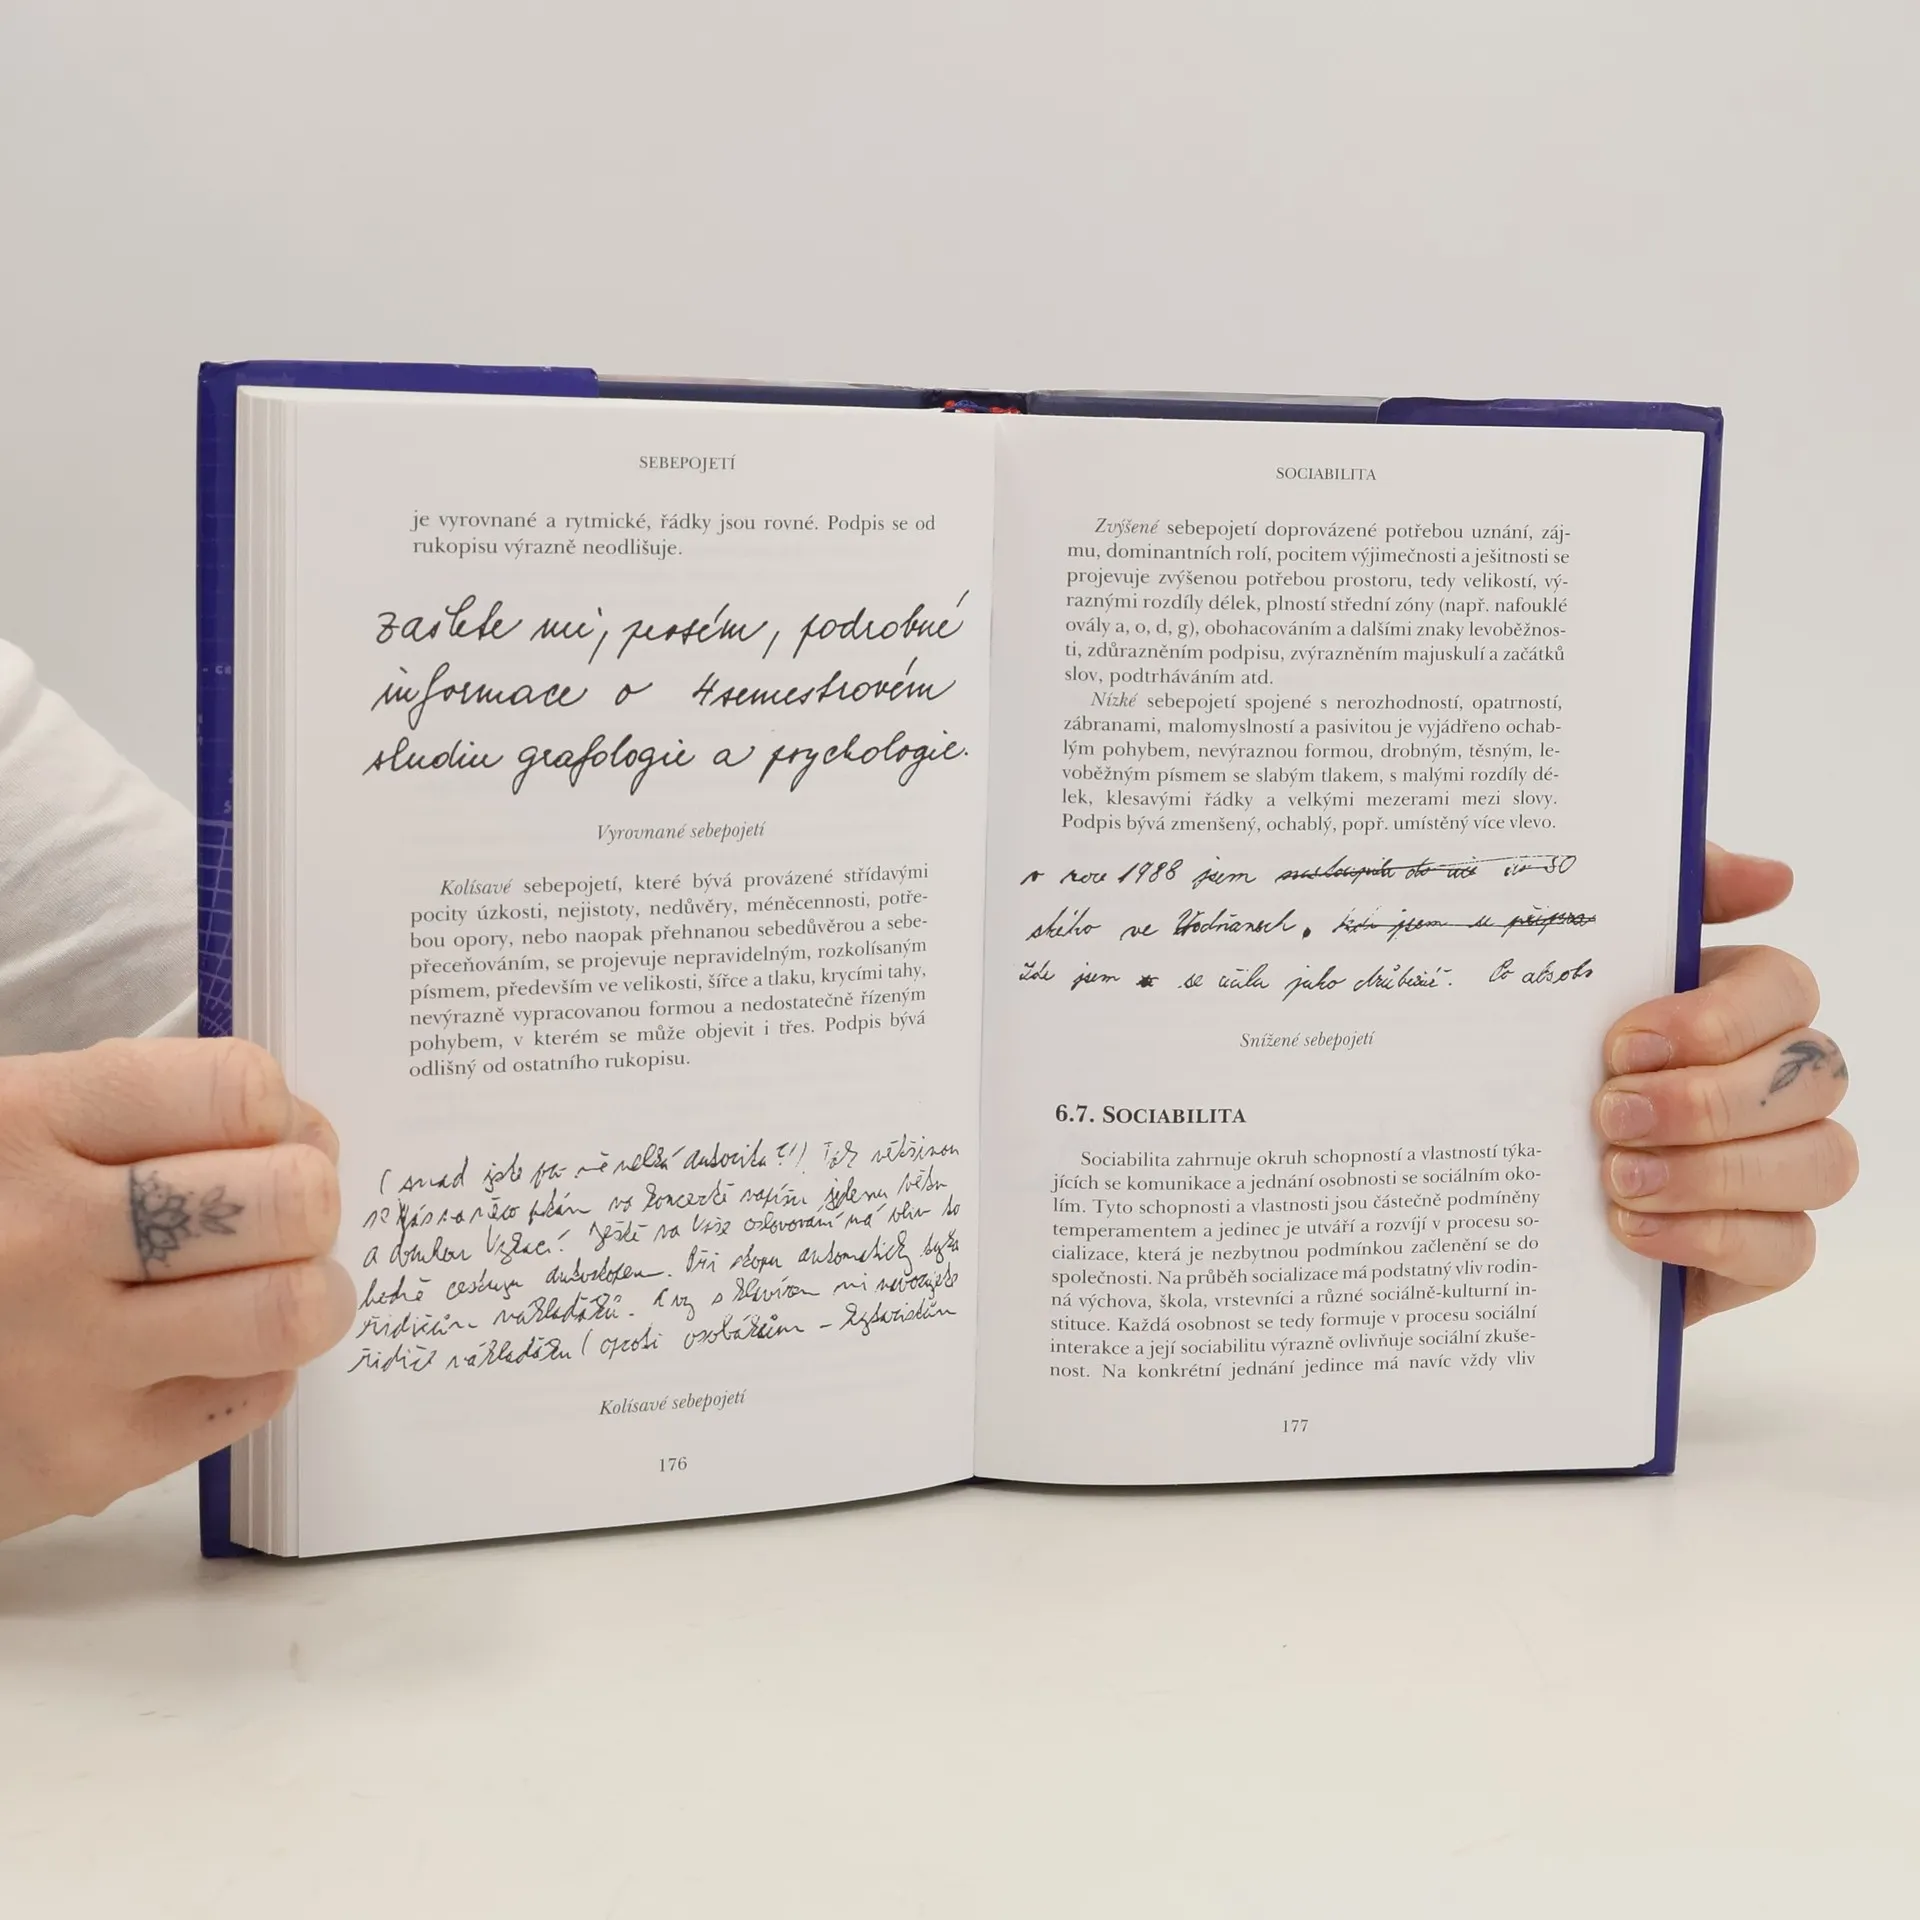 SEBEPOJETÍ
je vyrovnané a rytmické, řádky jsou rovné. Podpis se od
rukopisu výrazně neodlišuje.
zašlete mi, prosím, podrobné
informace o 4semestrovém
studiu grafologie a psychologie.
Vyrovnané sebepojetí
Kolísavé sebepojetí, které bývá provázené střídavými
pocity úzkosti, nejistoty, nedůvěry, méněcennosti, potře-
bou opory, nebo naopak přehnanou sebedůvěrou a sebe-
přeceňováním, se projevuje nepravidelným, rozkolísaným
písmem, především ve velikosti, šířce a tlaku, krycími tahy,
nevýrazně vypracovanou formou a nedostatečně řízeným
pohybem, v kterém se může objevit i třes. Podpis bývá
odlišný od ostatního rukopisu.
(snad jste pro mě velká autorita?!) Tak většinou
se Vás na něco ptám na koncertě napíšu jednu větu
a druhou Ještě na Vaše oslovování má vliv to
cestuju autostopem. Při stopu automaticky
řidičům náklaďáků. A vy s klavírem mi
řidič náklaďáku (oproti osobákům –
Kolísavé sebepojetí
176
SOCIABILITA
Zvýšené sebepojetí doprovázené potřebou uznání, záj-
mu, dominantních rolí, pocitem výjimečnosti a ješitnosti se
projevuje zvýšenou potřebou prostoru, tedy velikostí, vý-
raznými rozdíly délek, plností střední zóny (např. nafouklé
ovály a, o, d, g), obohacováním a dalšími znaky levoběžnos-
ti, zdůrazněním podpisu, zvýrazněním majuskulí a začátků
slov, podtrháváním atd.
Nízké sebepojetí spojené s nerozhodností, opatrností,
zábranami, malomyslností a pasivitou je vyjádřeno ochab-
lým pohybem, nevýraznou formou, drobným, těsným, le-
voběžným písmem se slabým tlakem, s malými rozdíly dé-
lek, klesavými řádky a velkými mezerami mezi slovy.
Podpis bývá zmenšený, ochablý, popř. umístěný více vlevo.
v roce 1988 jsem nastoupila do
ského ve Vodňanech. kde jsem se
Zde jsem se učila jako drůbežář. Po absolv
Snížené sebepojetí
6.7. SOCIABILITA
Sociabilita zahrnuje okruh schopností a vlastností týka-
jících se komunikace a jednání osobnosti se sociálním oko-
lím. Tyto schopnosti a vlastnosti jsou částečně podmíněny
temperamentem a jedinec je utváří a rozvíjí v procesu so-
cializace, která je nezbytnou podmínkou začlenění se do
společnosti. Na průběh socializace má podstatný vliv rodin-
ná výchova, škola, vrstevníci a různé sociálně-kulturní in-
stituce. Každá osobnost se tedy formuje v procesu sociální
interakce a její sociabilitu výrazně ovlivňuje sociální zkuše-
nost. Na konkrétní jednání jedince má navíc vždy vliv
177